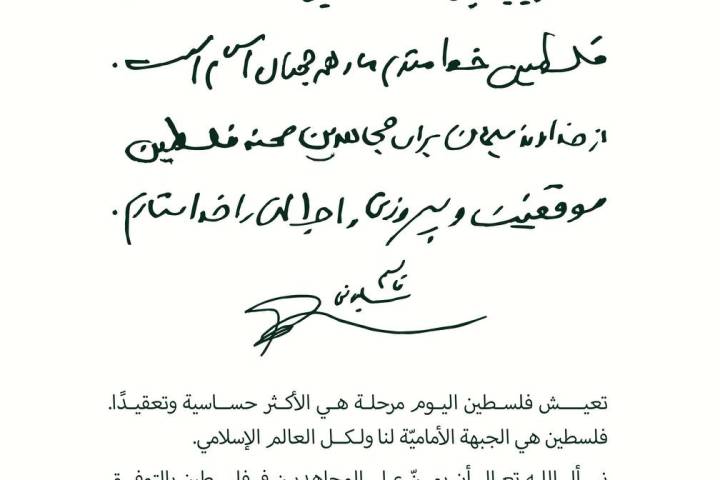 فلسطین خط مقدم ما و همه جهان اسلام است.
از خداوند سبحان برای مجاهدین صحنه فلسطین
موفقیت و پیروزی و را خواستارم.
قاسم
سلیمانی
تعيش فلسطين اليوم مرحلة هي الأكثر حساسية وتعقيدًا.
فلسطين هي الجبهة الأماميّة لنا ولكل العالم الإسلامي.